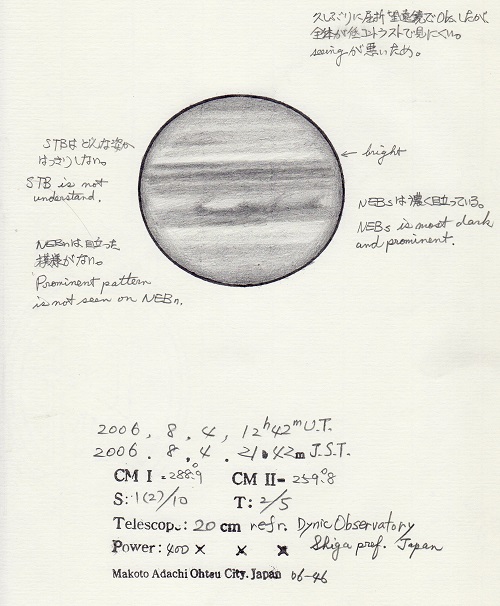 久しぶりに屈折望遠鏡でObs.したが、
全体が低コントラストで見にくい。
seeingが悪いため。
STBはどんな姿か
はっきりしない。
STB is not
understand.
← bright
NEBsは濃く目立っている。
NEBs is most dark
and prominent.
NEBnは目立った
模様がない。
Prominent pattern
is not seen on NEBn.
2006, 8, 4, 12h42m U.T.
2006. 8, 4. 21h42m J.S.T.
CM I = 288.°9 CM II= 259.°8
S: 1(2)/10 T: 2/5
Telescope: 20 cm refr. Dynic Observatory
Power: 400 × × × Shiga pref. Japan
Makoto Adachi Ohtsu City. Japan 06-46